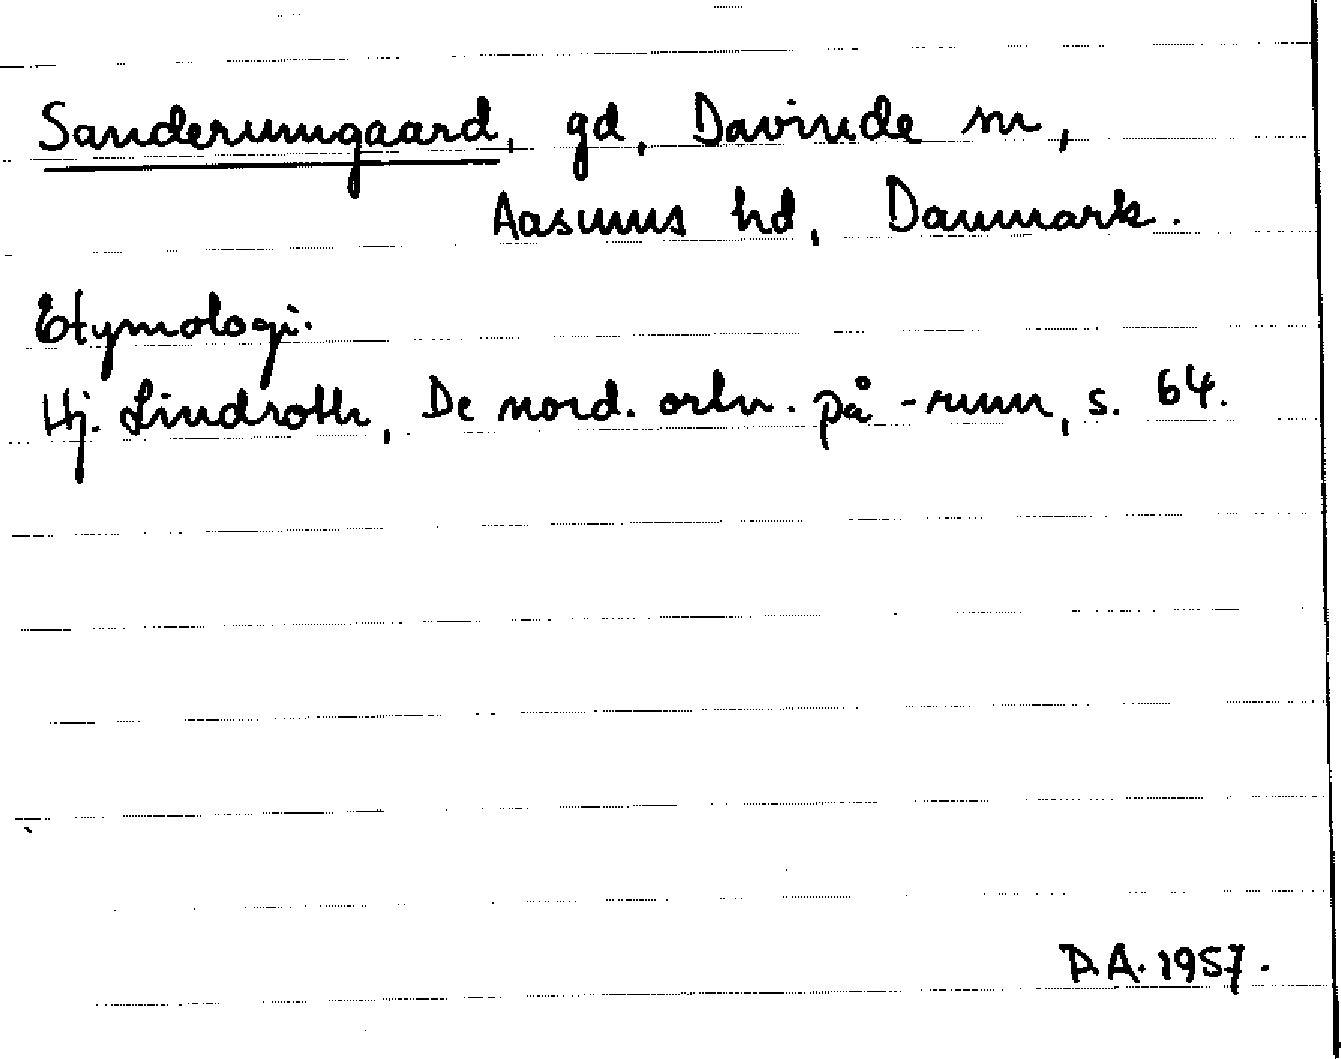 Sanderumgaard, gd, Davinde sn,
Aasums hd, Danmark.
Etymologi.
Hj. Lindroth, De nord. ortn. på -rum, s. 64.
D.A. 1957.